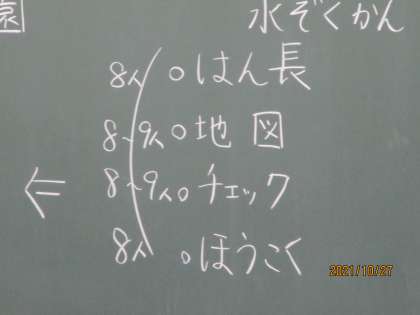 園 水ぞくかん
8人 ○はん長
8~9人 ○地図
⇐ 8~9人 ○チェック
8人 ○ほうこく
2021/10/27